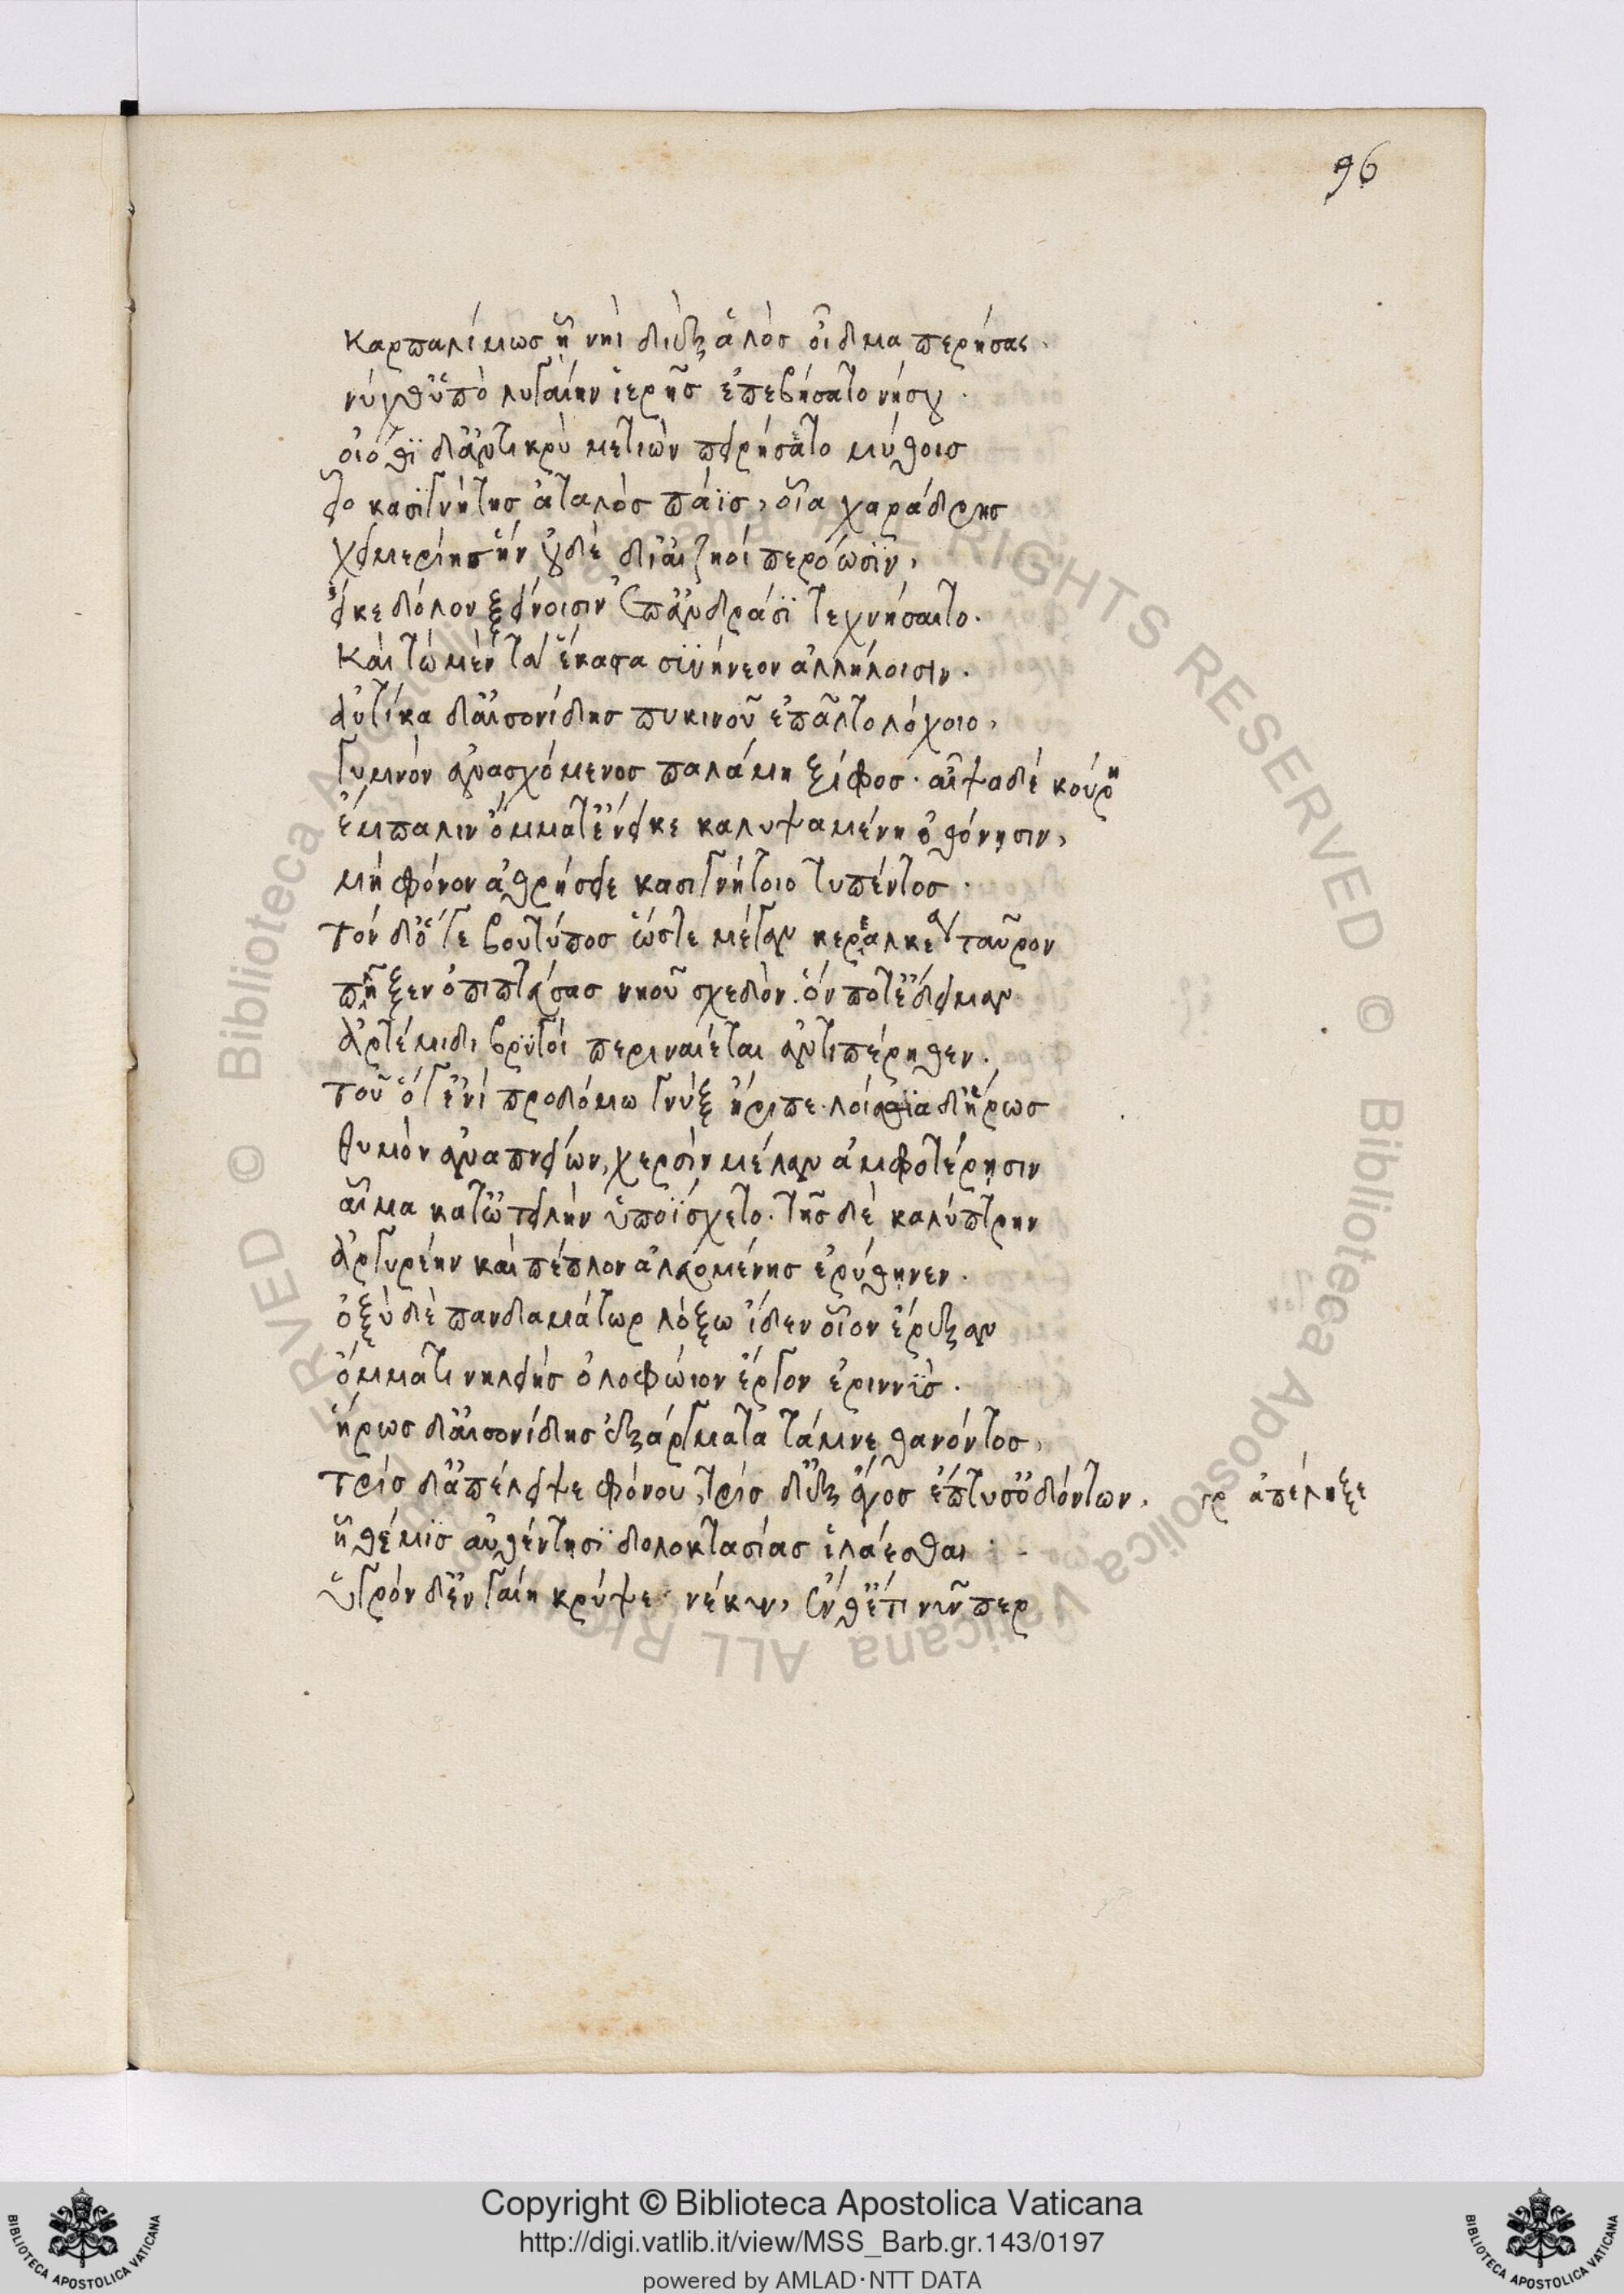 96
καρπαλίμωσ ᾗ νηὶ διὲξ ἁλὸσ οἶδμα περήσας.
νύχθ᾽ ὕπο λυγαίην ἱερῆσ ἐπεβήσατο νήσου.
οἰόθι δ᾽ ἄντικρὺ μετιὼν πειρήσατο μύθοισ
εἷο κασιγνήτησ ἀταλὸσ πάϊσ, οἷα χαράδρησ
χειμερίησ ἣν οὐδὲ δι᾽ αἰζηοὶ περόωσϊν,
εἴκε δόλον ξείνοισιν ἐπ᾽ ἀνδράσϊ τεχνήσαιτο.
Καὶ τὼ μὲν τὰ ἕκαστα συνήνεον ἀλλήλοισιν.
αὐτίκα δ᾽ αἰσονίδησ πυκινοῦ ἐπᾶλτο λόχοιο,
γυμνὸν ἀνασχόμενοσ παλάμη ξίφοσ. αἶψα δὲ κούρη
ἔμπαλιν ὄμματ᾽ ἔνεικε καλυψαμένη ὀθόνησιν,
μὴ φόνον ἀθρήσειε κασιγνήτοιο τυπέντοσ.
τὸν δ᾽ ὅγε βουτύποσ ὥστε μέγαν κεραλκέα ταῦρον
πῆξεν ὀπιπτεύσασ νηοῦ σχεδὸν. ὅν ποτ᾽ ἔδειμαν
ἀρτέμιδι βρυγοὶ περιναιέται ἀντιπέρηθεν.
τοῦ ὅγ᾽ ἐνὶ προδόμω γνὺξ ἤριπε. λοίσθϊα δ᾽ ἥρωσ
θυμὸν ἀναπνείων, χερσὶν μέλαν ἀμφοτέρησιν
αἷμα κατ᾽ ὠτειλὴν ὑποΐσχετο. τῆσ δὲ καλύπτρην
ἀργυρέην καὶ πέπλον ἀλευομένησ ἐρύθηνεν.
ὀξὺ δὲ πανδαμάτωρ λόξω ἴδεν οἷον ἔρεξαν
ὄμματι νηλειὴσ ὀλοφώιον ἔργον ἐριννϋσ.
ἥρωσ δ᾽ αἰσονίδησ ἐξάργματα τάμνε θανόντοσ,
τρὶσ δ᾽ ἀπέλειψε φόνου, τρὶσ δ᾽ ἐξ ἄγοσ ἔπτυσ᾽ ὀδόντων. γρ ἀπέληξε
ἣ θέμϊσ αὐθέντησϊ δολοκτασίασ ἱλάεσθαι.
ὑγρὸν δ᾽ ἐν γαίη κρύψε νέκυν, ἔνθ᾽ ἔτι νῦν περ
Copyright © Biblioteca Apostolica Vaticana
http://digi.vatlib.it/view/MSS_Barb.gr.143/0197
powered by AMLAD·NTT DATA